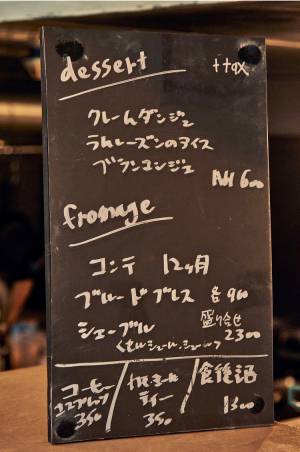 dessert ++tax
クレームダンジュ
ラムレーズンのアイス
ブランマンジェ
All 600
fromage
コンテ 12ヶ月
ブルードブレス 各900
シェーブル 盛り合せ
2300
コーヒー カモミール 食後酒
エスプレッソ ティー
350 350 1300